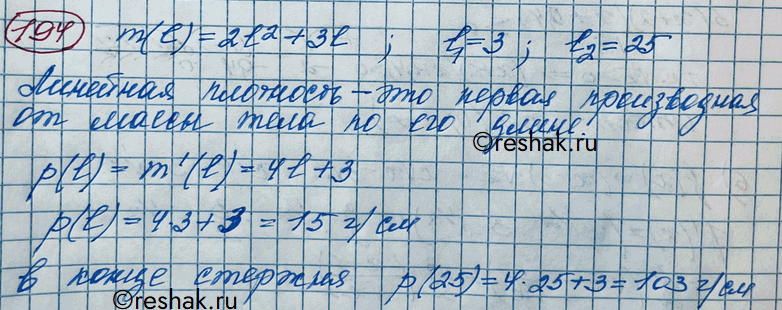 194 m(l) = 2l² + 3l ; l₁ = 3 ; l₂ = 25
Линейная плотность – это первая производная
от массы тела по его длине.
©reshak.ru
p(l) = m'(l) = 4l + 3
p(l) = 4·3 + 3 = 15 г/см
в конце стержня p(25) = 4·25 + 3 = 103 г/см
©reshak.ru